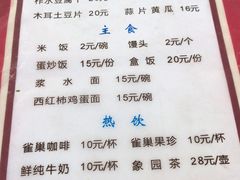 木耳土豆片 20元 蒜片黄瓜 16元
主食
米饭 2元/碗 馒头 2元/个
蛋炒饭 15元/份 盒饭 20元/份
浆水面 15元/碗
西红柿鸡蛋面 15元/碗
热饮
雀巢咖啡 10元/杯 雀巢果珍 10元/杯
鲜纯牛奶 10元/杯 象园茶 28元/壶